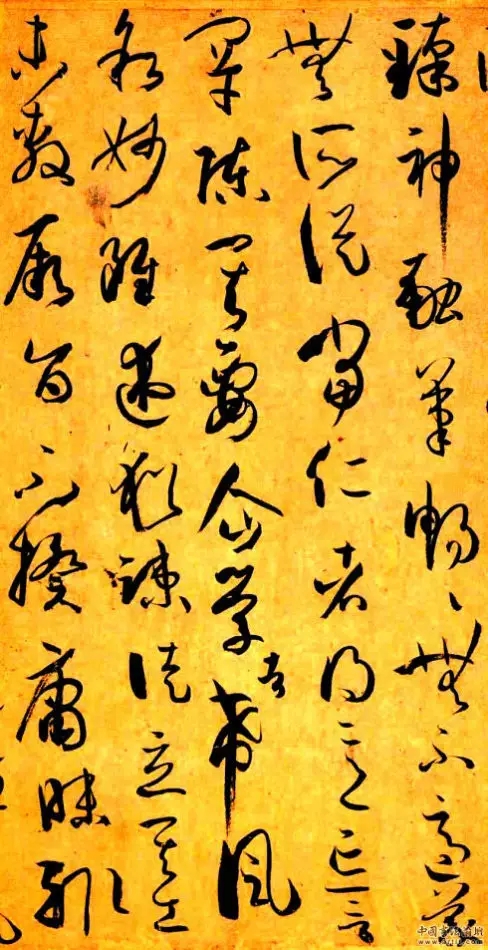 臻神融筆暢〻無不適蒙
無所從當仁者得意忘言
罕陳其要企學者希風
叙妙雖述猶疎徒立其工
未敷厥旨不揆庸昧輒